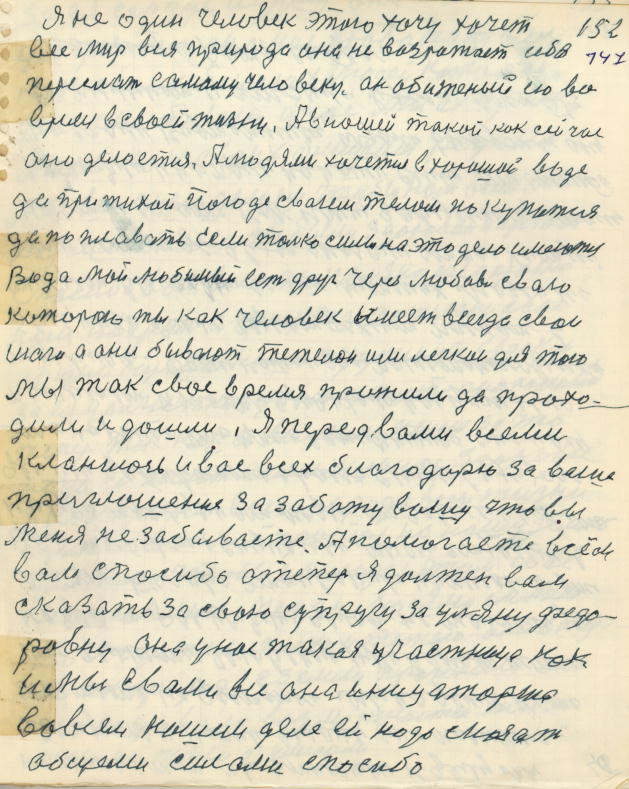 Я не один человек этого хочу хочет 152
все мир вся природа она не возрожает себя 141
переслат самому человеку. он обиженый ею во
время в своей жизни. А в нашей такой как сейчас
оно делается. А людями хочется в хорошой воде
да при тихой погоде своем телом покупатся
да поплавать если толко силы на это дело имеются
Вода мой любимый ест друг через любовь
которою ты как человек имеет всегда свои
шаги а они бывают тежелои или легкои для того
мы так свое время прожили да прохо-
дили и дошли, Я перед вами всеми
кланяюсь и вас всех благодарю за ваше
приглошение за заботу вашу что вы
меня не забываете. А помогаете всем
вам спосибо а тепер я должен вам
сказать за свою супругу за ульяну федо-
ровну она у нас такая участница как
и мы с вами все она инициаторша
во всем нашем деле ей надо сказат
общеми силами спосибо